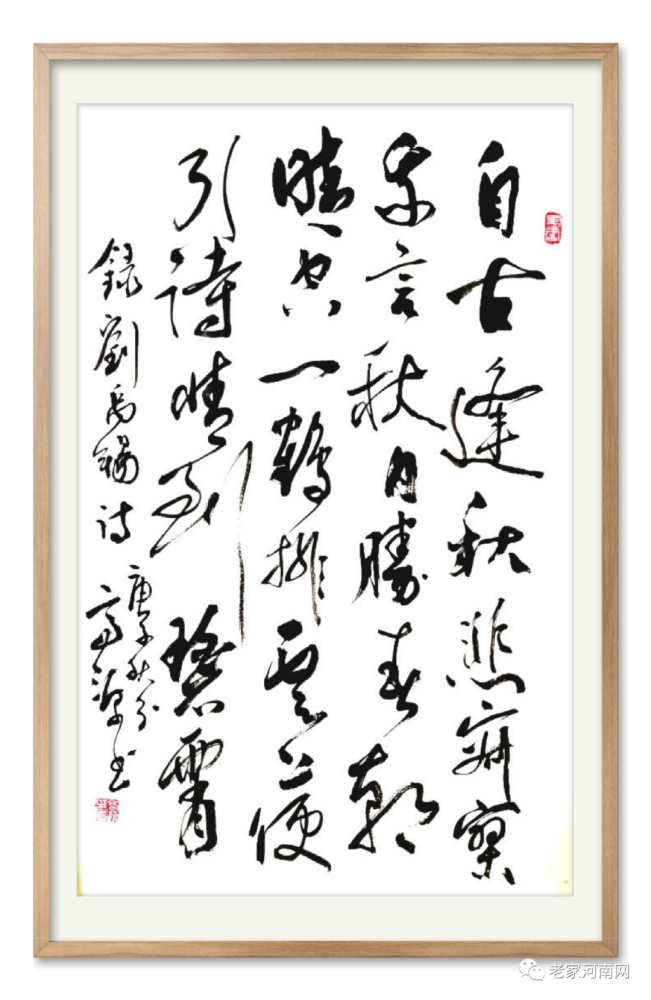 自古逢秋悲寂寥
我言秋日勝春朝
晴空一鶴排雲上便
引詩情到碧霄
録劉禹錫诗
庚子秋分
书
老家河南网